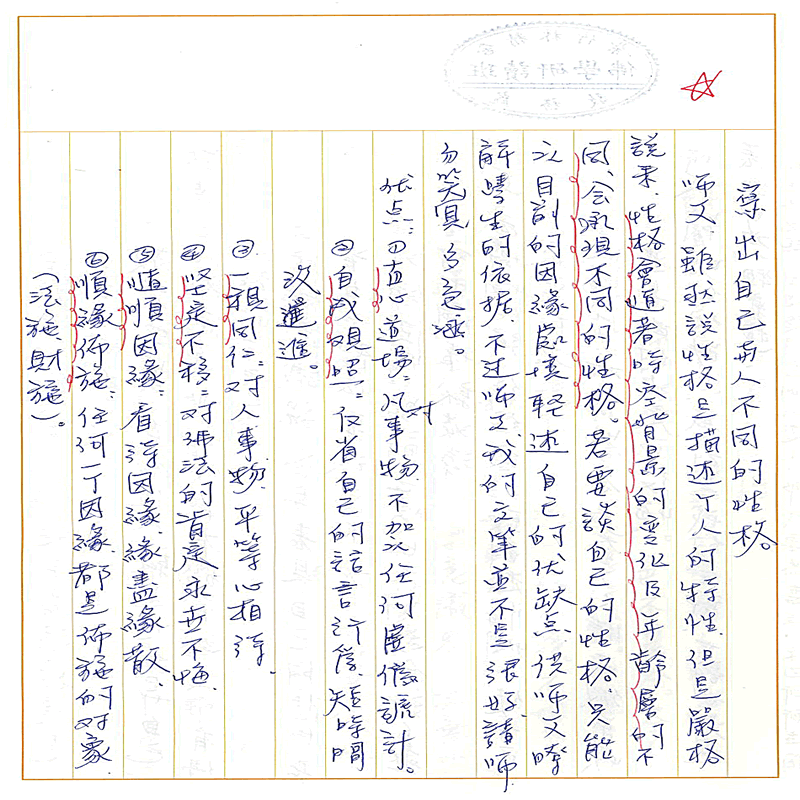 寫出自己与人不同的性格
師父.雖然說性格是描述个人的特性.但是嚴格
說來.性格會隨著時空背景的变化及年齡層的不
同.会承現不同的性格。若要談自己的性格.只能
以目前的因緣處境輕述自己的优缺点供師父瞭
解畴生的依据.不过師父我的文筆並不是很好.請師
勿笑冥多包涵。
优点:①直心道場:凡對事物.不加以任何虛偽謊計。
②自我观照:仅省自己的語言行為.短時間
改進進。
③一視同仁:对人事物.平等心相待.
④堅定不移:对佛法的肯定永世不悔.
⑤隨順因緣:看待因緣.緣盡緣散.
⑥順緣佈施:任何一个因緣.都是佈施的对象.
(法施財施)。